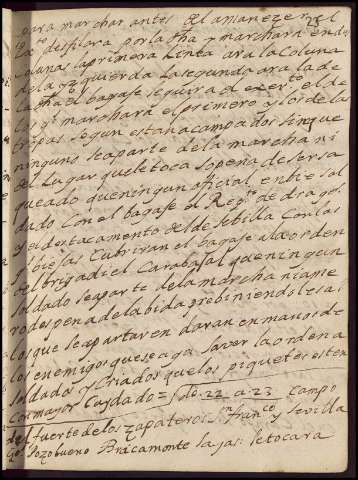 para marchar antes del amanezer el
desfilara por la y marchara en dos
colunas la primera linea ara la coluna
de la yzquierda la segunda ara la de
la dha el bagaje seguira de ezerto el de
marchara el primero y los de las
tropas segun estan acampados sin que
ninguno se aparte de la marcha ni
del lugar que le toca so pena de ser sa
queado que ningun ofiçial enbie sol
dado con el bagaje el Regto de dragos
y el destacamento de de Sebilla con las
y biejas cubriran el bagaje a la orden
del brigadiel Carabajal que ningun
soldado se aparte de la marcha ni a se
ro des pena de la bida prebiniendoles a
los que se apartaren daran en manos de
los enemigos que se aga saver la orden a
soldados y criados que los piquetes esten
con mayor cuydado = 22 a 23 campo
del fuerte de los zapateros Sn franco y sevilla
Pozobueno Bracamonte la jas: le tocara